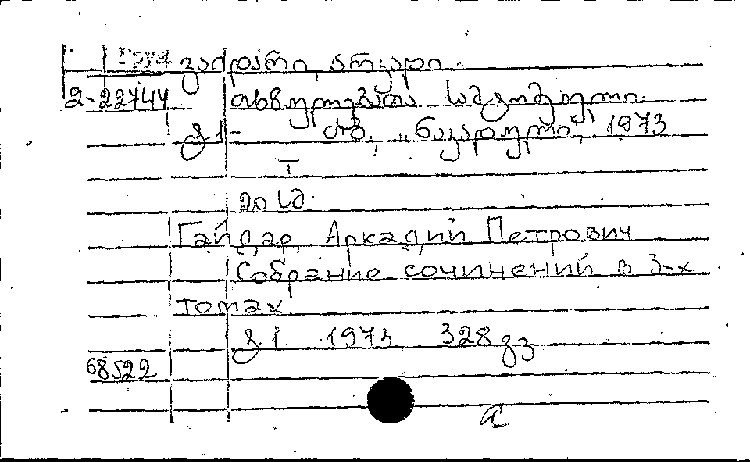 გაიდარი, არკადი.
2-22744 თხზულებათა სამტომეული.
ტ 1- თბ. „ნაკადული“, 1973
I
Гайдар, Аркадий Петрович
Собрание сочинений в 3-х
томах
ტ. 1 1973 328 გვ
68522